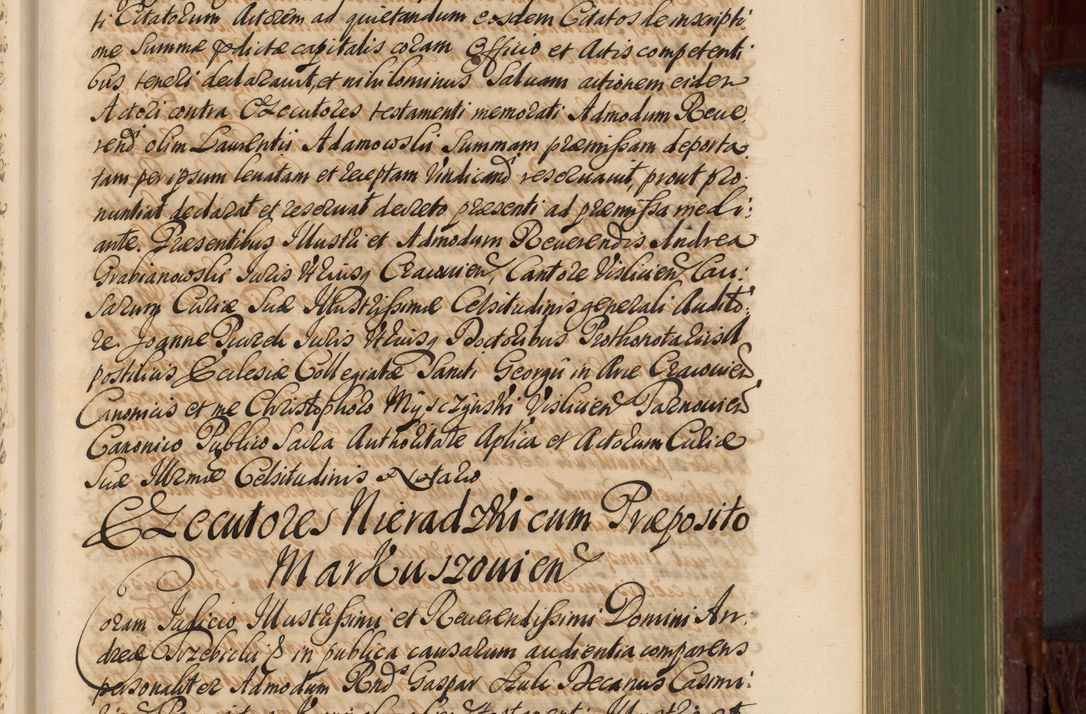 ti Citatorum Actorem ad quietandum eosdem Citatos de inscripti
one Summæ pdictæ capitalis coram Officio et Actis competenti
bus teneri declarauit, et nihilominus Saluam actionem eidem
Actori contra Executores testamenti memorati Admodum Reue,
rend olim Laurentii Adamowskii Summam præmissam deporta,
tam per ipsum leuatam et receptam Vindicand reseruauit, prout pro,
nuntiat declarat et reseruat decreto præsenti ad præmissa medi:
ante. Præsentibus Illustri et Admodum Reuerendis Andrea
Grabianowskii Juris Vtriusq Cracouien Cantore Visliciens Cau:
sarum Curiæ Suæ Illustrissimæ Celsitudinis generali Audito:
re. Joanne Juris Vtriusq Doctoribus Prothonotariis A
postolicis Ecclesiæ Collegiatæ Sancti Georgii in Arce Cracouien
Canonicis et me Christophoro Mysczynski Vislicien Tarnouien
Canonico Publico Sacra Authoritate Aplica et Actorum Curiæ
Suæ Illrmæ Celsitudinis Notario
Executores Nieradzki cum Præposito
Markuszouien
Coram Judicio Illustrissimi et Reuerendissimi Domini An,
dreæ Trzebicki E in publica causarum audientia comparens
personaliter Admodum Rnds Gaspar Decanus Casimi: